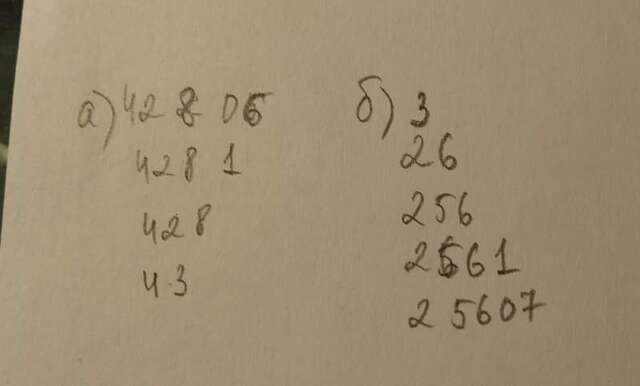 а) 42 8 06
4281
428
43
б) 3
26
256
2561
25607